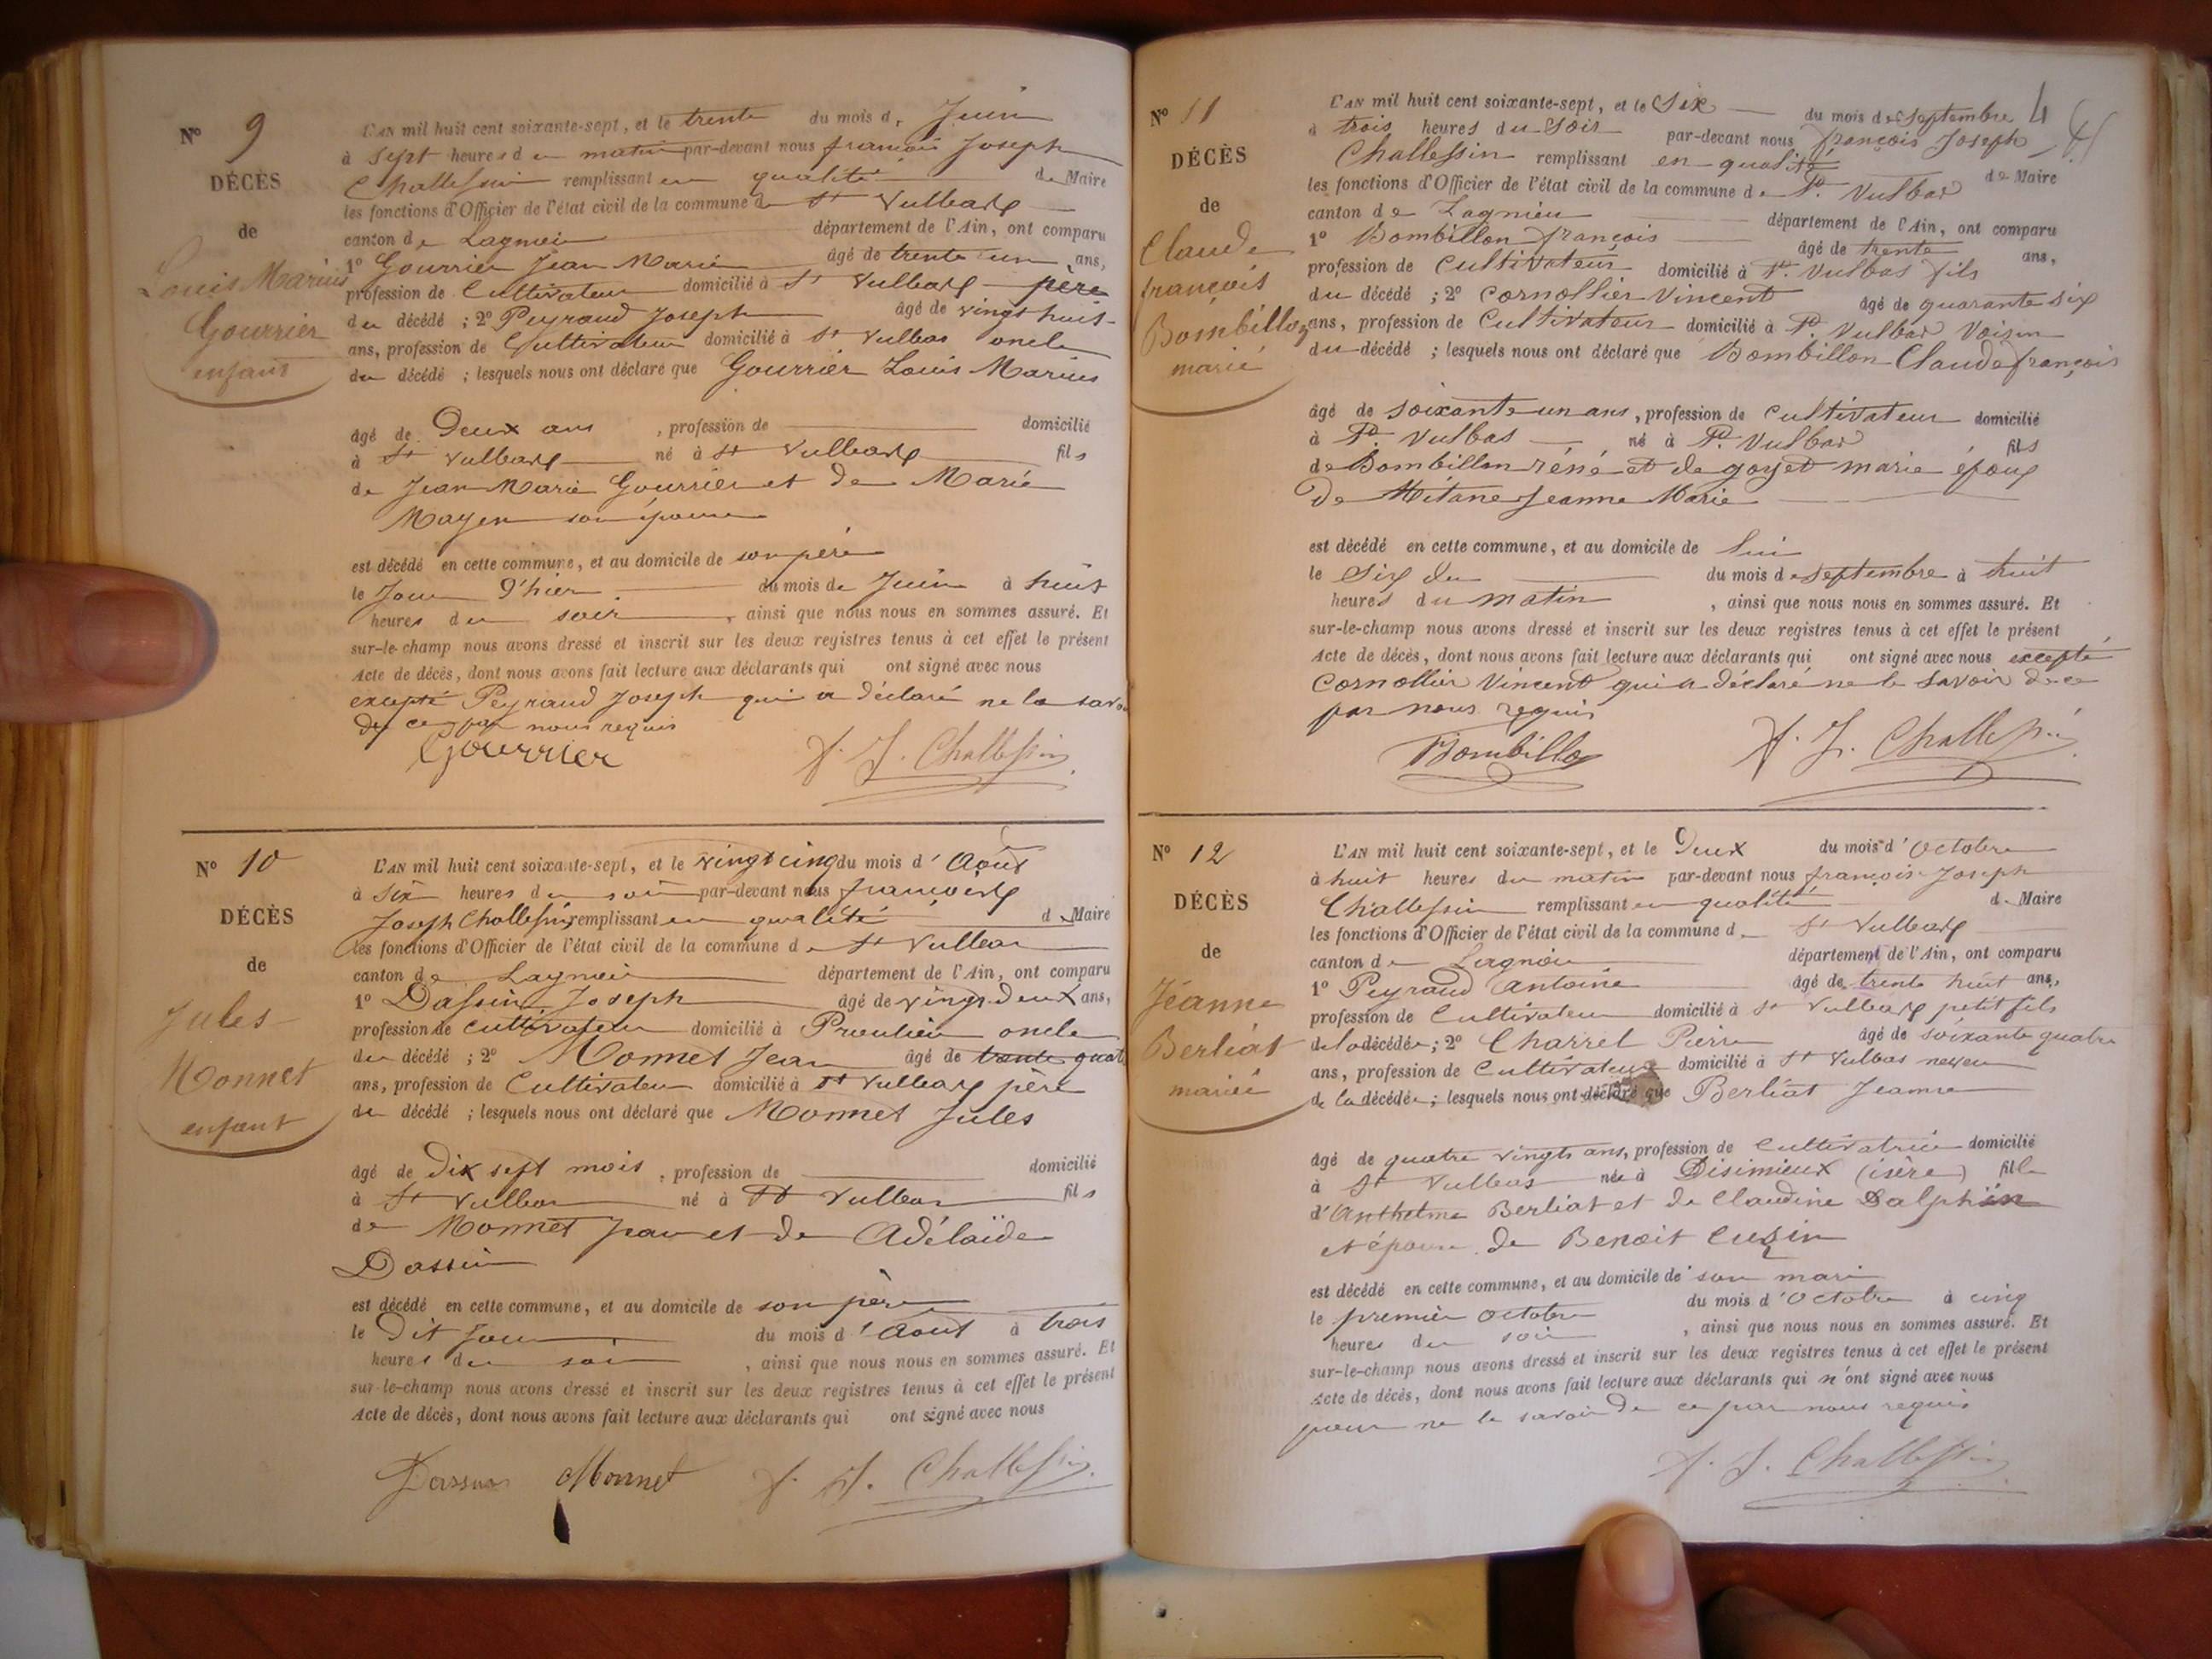 N° 9
DÉCÈS
de
Louis Marius
Gourrier
enfant
L'AN mil huit cent soixante-sept, et le trente du mois d, Juin
à sept heures du matin par-devant nous françois Joseph
Challessin remplissant en qualité de Maire
les fonctions d'Officier de l'état civil de la commune de St Vulbas
canton de Lagnieu département de l'Ain, ont comparu
1° Gourrier Jean Marie âgé de trente un ans,
profession de Cultivateur domicilié à St Vulbas père
du décédé ; 2° Peyraud Joseph âgé de vingt huit
ans, profession de Cultivateur domicilié à St Vulbas oncle
du décédé ; lesquels nous ont déclaré que Gourrier Louis Marius
âgé de Deux ans , profession de domicilié
à St Vulbas né à St Vulbas fils
de Jean Marie Gourrier et de Marie
Mayen son épouse
est décédé en cette commune, et au domicile de son père
le Jour d'hier du mois de Juin à huit
heures du soir , ainsi que nous nous en sommes assuré. Et
sur-le-champ nous avons dressé et inscrit sur les deux registres tenus à cet effet le présent
Acte de décès, dont nous avons fait lecture aux déclarants qui ont signé avec nous
excepté Peyraud Joseph qui a déclaré ne le savoir
de ce par nous requis
Gourrier F. J. Challessin
N° 10
DÉCÈS
de
Jules
Monnet
enfant
L'AN mil huit cent soixante-sept, et le vingt cinq du mois d'Août
à six heures du soir par-devant nous françois
Joseph Challessin remplissant en qualité de Maire
les fonctions d'Officier de l'état civil de la commune de St Vulbas
canton de Lagnieu département de l'Ain, ont comparu
1° Dassin Joseph âgé de vingt deux ans,
profession de cultivateur domicilié à Proulieu oncle
du décédé ; 2° Monnet Jean âgé de trente quatre
ans, profession de Cultivateur domicilié à St Vulbas père
du décédé ; lesquels nous ont déclaré que Monnet Jules
âgé de Dix sept mois , profession de domicilié
à St Vulbas né à St Vulbas fils
de Monnet Jean et de Adélaïde
Dassin
est décédé en cette commune, et au domicile de son père
le Dit Jour du mois d'Août à trois
heures du soir , ainsi que nous nous en sommes assuré. Et
sur-le-champ nous avons dressé et inscrit sur les deux registres tenus à cet effet le présent
Acte de décès, dont nous avons fait lecture aux déclarants qui ont signé avec nous
Dassin Monnet F. J. Challessin
4
N° 11
DÉCÈS
de
Claude
françois
Bombillon
marié
L'AN mil huit cent soixante-sept, et le Six du mois de septembre
à trois heures du Soir par-devant nous françois Joseph
Challessin remplissant en qualité de Maire
les fonctions d'Officier de l'état civil de la commune de St Vulbas
canton de Lagnieu département de l'Ain, ont comparu
1° Bombillon françois âgé de trente ans,
profession de Cultivateur domicilié à St Vulbas fils
du décédé ; 2° Cornollier Vincent âgé de quarante six
ans, profession de Cultivateur domicilié à St Vulbas Voisin
du décédé ; lesquels nous ont déclaré que Bombillon Claude françois
âgé de soixante un ans, profession de Cultivateur domicilié
à St Vulbas né à St Vulbas fils
de Bombillon réné et de goyet marie époux
De Mitane Jeanne Marie
est décédé en cette commune, et au domicile de lui
le Six du du mois de septembre à huit
heures du matin , ainsi que nous nous en sommes assuré. Et
sur-le-champ nous avons dressé et inscrit sur les deux registres tenus à cet effet le présent
Acte de décès, dont nous avons fait lecture aux déclarants qui ont signé avec nous excepté
Cornollier Vincent qui a déclaré ne le savoir de ce
par nous requis
Bombillon F. J. Challessin
N° 12
DÉCÈS
de
Jéanne
Berliat
mariée
L'AN mil huit cent soixante-sept, et le Deux du mois d'Octobre
à huit heures du matin par-devant nous françois Joseph
Challessin remplissant en qualité de Maire
les fonctions d'Officier de l'état civil de la commune de St Vulbas
canton de Lagnieu département de l'Ain, ont comparu
1° Peyraud Antoine âgé de trente huit ans,
profession de Cultivateur domicilié à St Vulbas petit fils
de la décédée ; 2° Charrel Pierre âgé de soixante quatre
ans, profession de Cultivateur domicilié à St Vulbas neveu
de la décédée ; lesquels nous ont déclaré que Berliat Jeanne
âgé de quatre vingts ans, profession de Cultivatrice domicilié
à St Vulbas née à Disimieux (isère) fille
d'Anthelme Berliat et de Claudine Dalphin
et épouse de Benoit Cuzin
est décédé en cette commune, et au domicile de son mari
le premier octobre du mois d'Octobre à cinq
heures du soir , ainsi que nous nous en sommes assuré. Et
sur-le-champ nous avons dressé et inscrit sur les deux registres tenus à cet effet le présent
Acte de décès, dont nous avons fait lecture aux déclarants qui n'ont signé avec nous
pour ne le savoir de ce par nous requis
F. J. Challessin